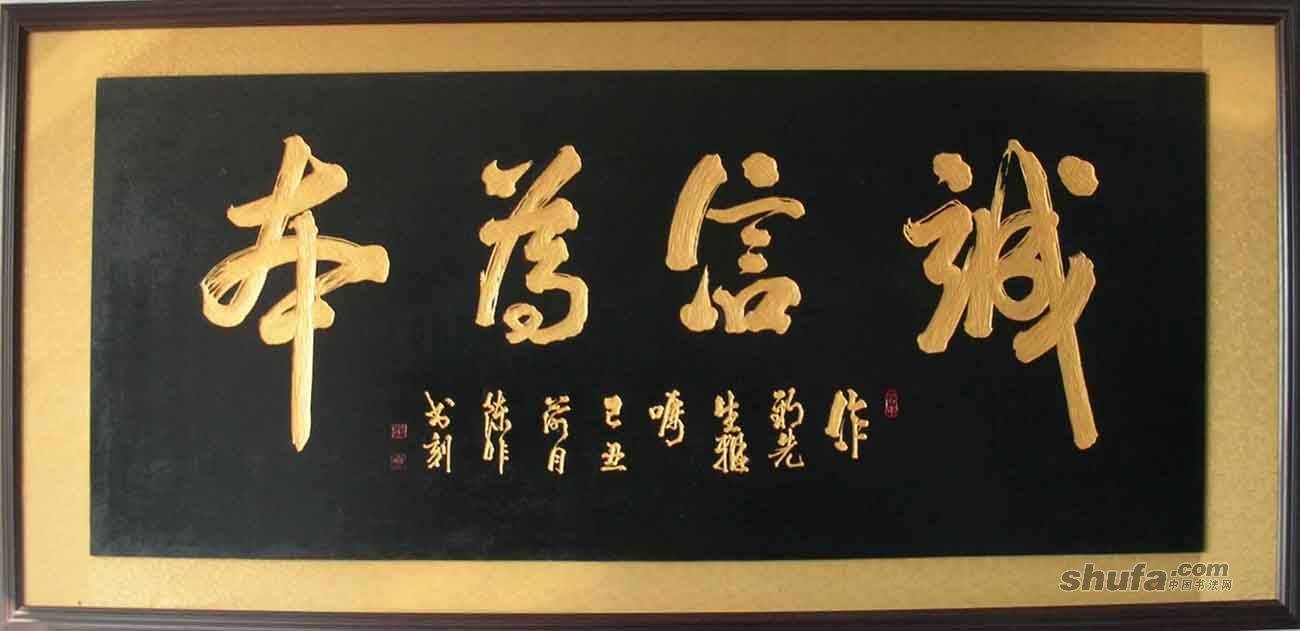 誠信為本
作
勤先
生雅
嘱
己丑
荷月
陈
书刻
shufa.com
中国书法网